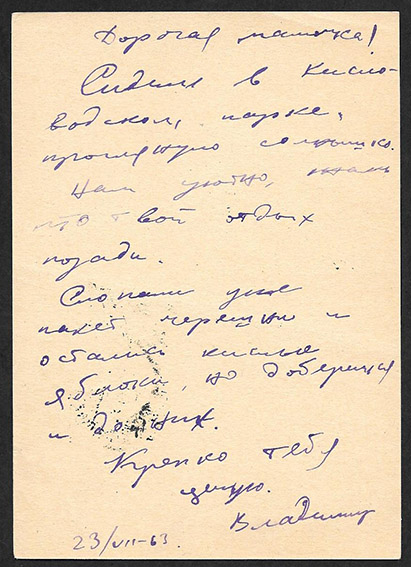 Дорогая мамочка!
Сидим в Кисло-
водском, парке,
проглянуло солнышко.
Нам уютно, жаль
что твой отдых
позади.
Слопали уже
пакет черешни и
остались кислые
яблоки, но доберемся
и до них.
Крепко тебя
целую.
Владимир
23/VII-63.